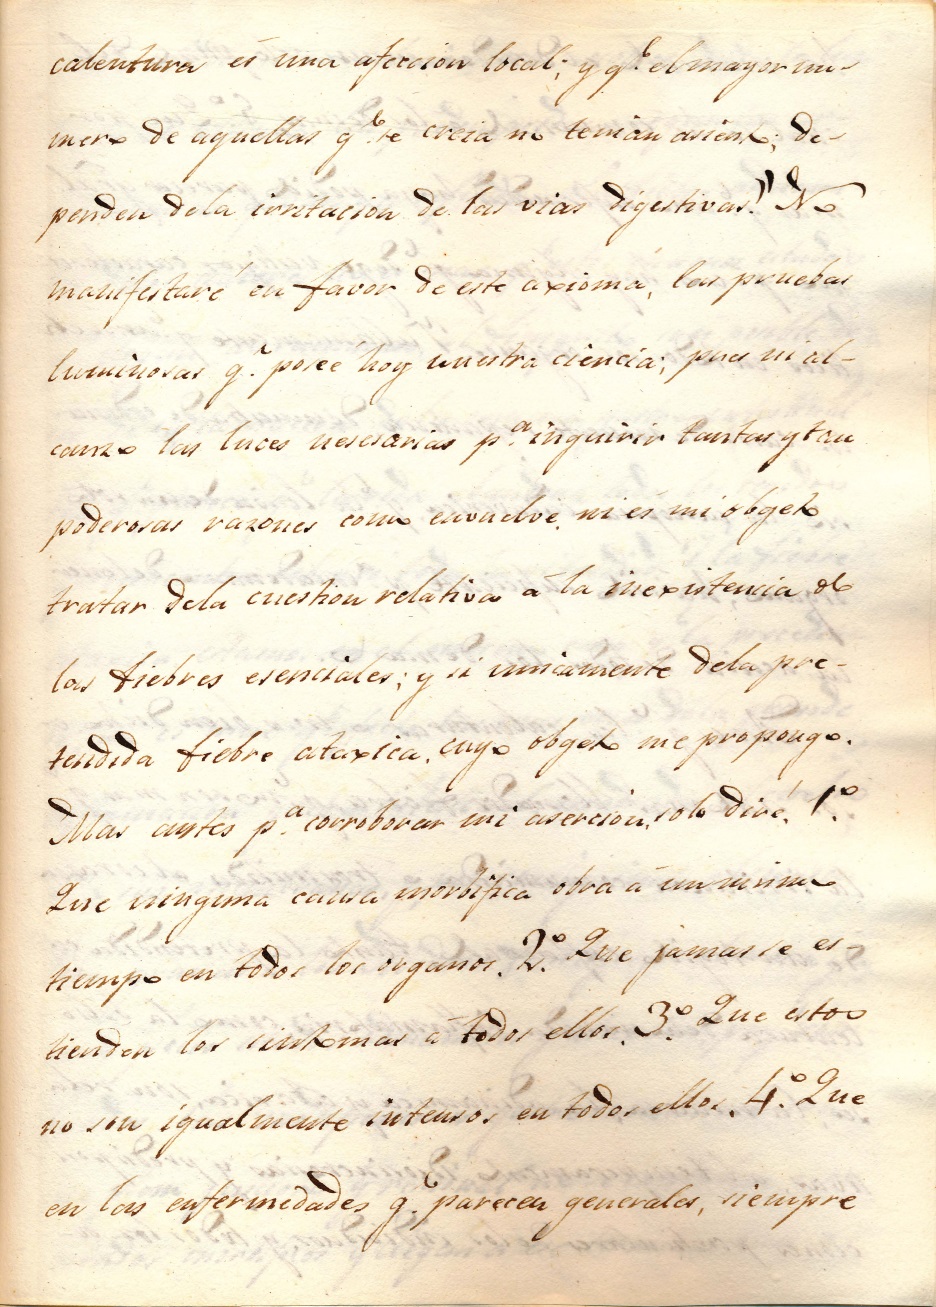 calentura és una afeccion local; y q.e el mayor nu-
mero de aquellas q.e se creia no tenian asiento; de-
penden dela irritacion de las vias digestivas." No
manifestaré en favor de este axioma, las pruebas
luminosas q.e poseé hoy nuestra ciencia; pues ni al-
canzo las luces nescesarias p.a inquirir tantas y tan
poderosas razones como envuelve, ni és mi obgeto
tratar dela cuestion relativa á la inexistencia de
las fiebres esenciales; y si unicamente dela pre-
tendida fiebre ataxica, cuyo obgeto me propongo.
Mas antes p.a corroborar mi asercion, solo diré, 1.o
Que ninguna causa morbifica obra á un mismo
tiempo en todos los organos. 2.o Que jamas se es-
tienden los sintomas á todos ellos. 3.o Que estos
no son igualmente intensos en todos ellos. 4.o Que
en las enfermedades q.e parecen generales, siempre